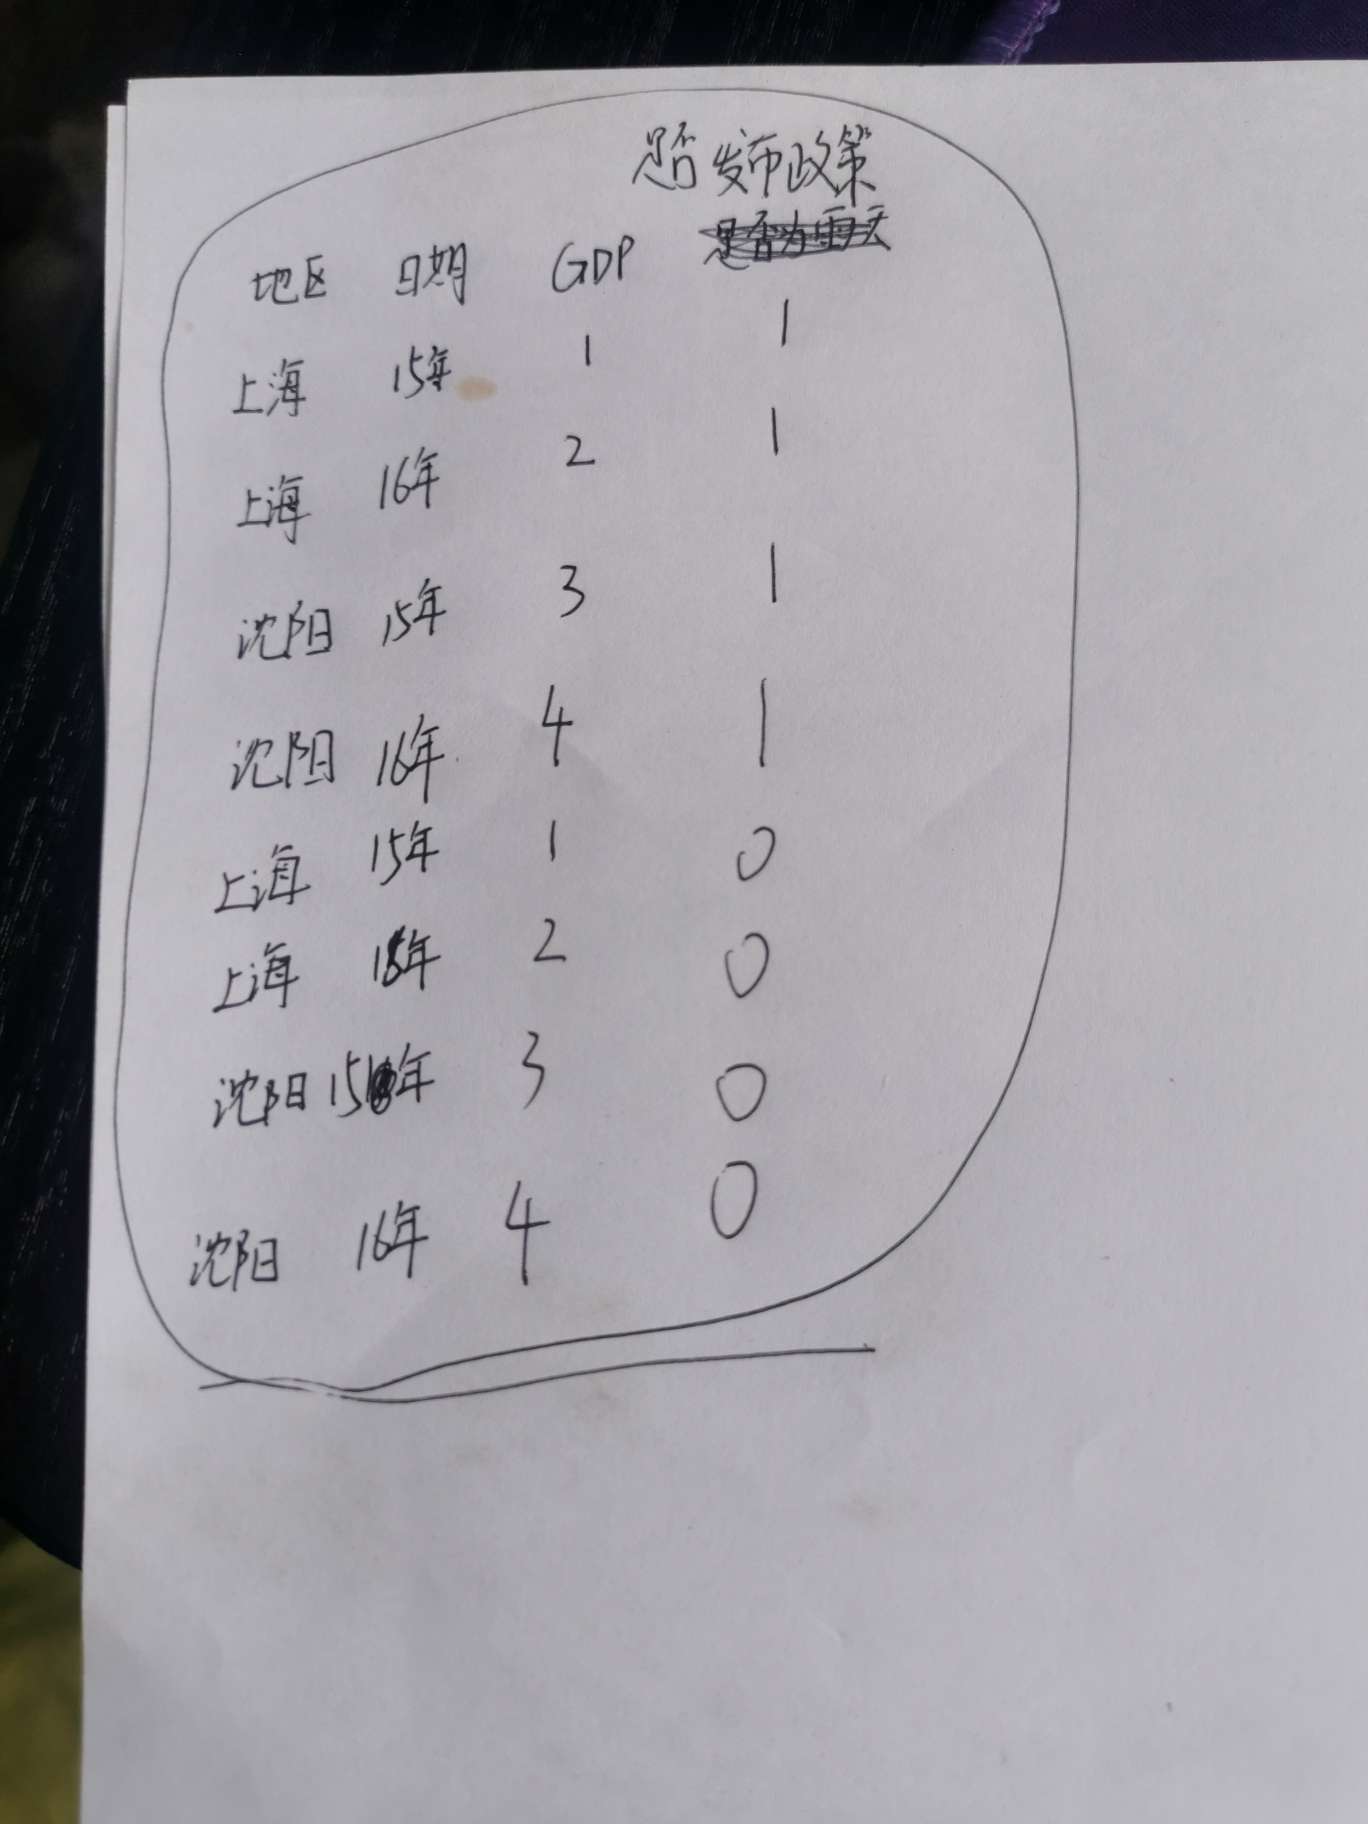 是否发布政策
是否为雨天
地区 日期 GDP
上海 15年 1 1
上海 16年 2 1
沈阳 15年 3 1
沈阳 16年 4 1
上海 15年 1 0
上海 16年 2 0
沈阳 15年 3 0
沈阳 16年 4 0